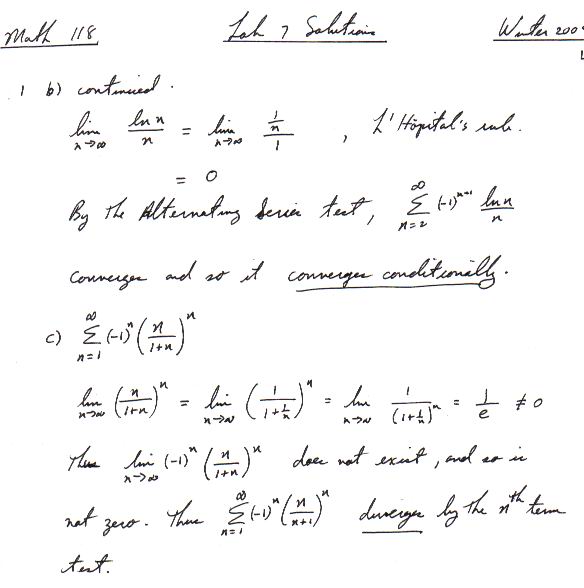 Math 118 Lab 7 Solutions Winter 200
1 b) continued.
lim_{n→∞} ln n / n = lim_{n→∞} (1/n) / 1 , L'Hôpital's rule.
= 0
By the Alternating Series test, ∑_{n=2}^{∞} (-1)^{n-1} ln n / n
converges and so it converges conditionally.
c) ∑_{n=1}^{∞} (-1)^n (n/(1+n))^n
lim_{n→∞} (n/(1+n))^n = lim_{n→∞} (1/(1+1/n))^n = lim_{n→∞} 1/(1+1/n)^n = 1/e ≠ 0
Thus lim_{n→∞} (-1)^n (n/(1+n))^n does not exist, and so is
not zero. Thus ∑_{n=1}^{∞} (-1)^n (n/(n+1))^n diverges by the nth term
test.